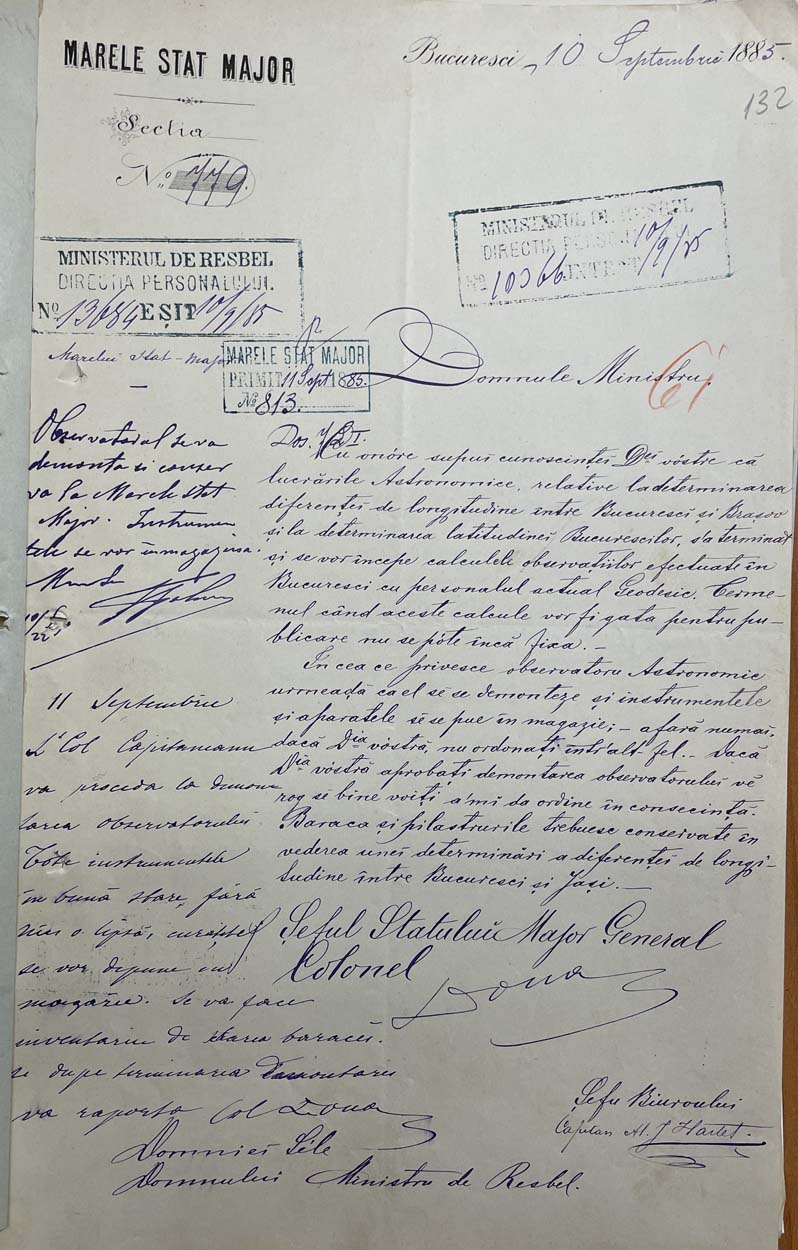 MARELE STAT MAJOR
Secția
No. 779.
Bucuresci, 10 Septembrie 1885.
132
MINISTERUL DE RESBEL
DIRECTIA PERSONALULUI.
No 10366 INTRAT 10/9/85
MINISTERUL DE RESBEL
DIRECTIA PERSONALULUI.
No 13684 EȘIT 10/9/85
Marelui Stat-major
MARELE STAT MAJOR
PRIMIT 11 Sept 1885.
No 813.
Domnule Ministru,
61
Observatorul se va
demonta si conser
va la Marele Stat
Major. Instrumen
tele se vor înmagazina.
10/9
22
Dos.
Cu onóre supui cunoscinței Dei vóstre că
lucrările Astronomice, relative la determinarea
diferenței de longitudine între Bucuresci și Brașov
si la determinarea latitudinei Bucurescilor, s'a terminat
și se vor începe calculele observațiilor efectuate în
Bucuresci cu personalul actual Geodesic. Terme-
nul când aceste calcule vor fi gata pentru pu-
blicare nu se póte încă fixa. —
În ceea ce privesce observatoru Astronomic
urmează ca el sĕ se demonteze și instrumentele
și aparatele sĕ se pue în magazie; — afară numai,
dacă Dia vóstră, nu ordonați într'alt fel. — Dacă
Dia vóstră aprobați demontarea observatorului vĕ
rog sĕ bine voiți, a'mi da ordine în consecință.
Baraca și pilastrurile trebuesc conservate în
vederea unei determinări a diferenței de longi-
tudine între Bucuresci și Jași. —
Șeful Statului Major General
Colonel
11 Septembrie
Lt Col Capitaneanu
va proceda la demon
tarea observatorului
Tóte instrumentele
în bună stare, fără
nici o lipsă, curățite
se vor depune în
magazie. Se va face
inventariu de starea baracei.
și după terminarea demontarei
va raporta Col Dona
Șefu Biuroului
Capitan Al. J Hartel
Domniei Séle
Domnului Ministru de Resbel.